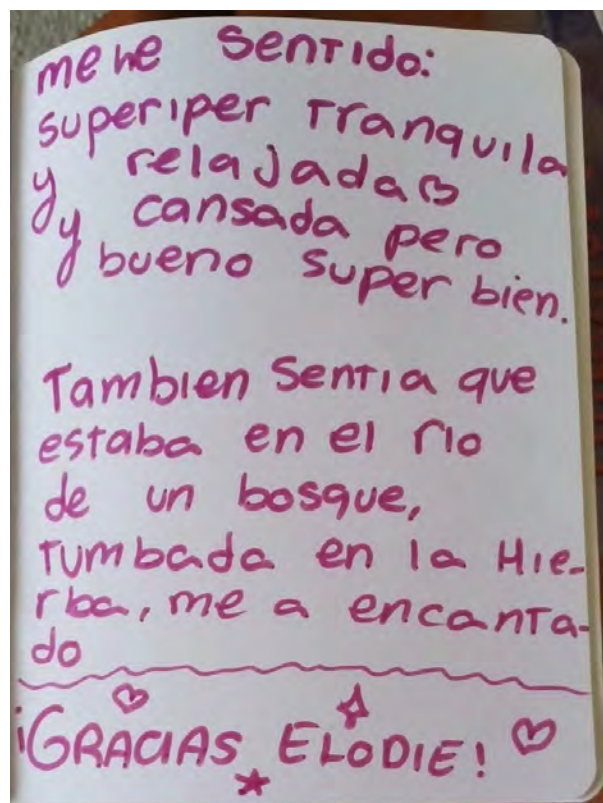 me he sentido:
superiper tranquila
y relajada
y cansada pero
bueno super bien.
Tambien sentia que
estaba en el rio
de un bosque,
tumbada en la Hie-
rba, me a encanta-
do
¡GRACIAS ELODIE!